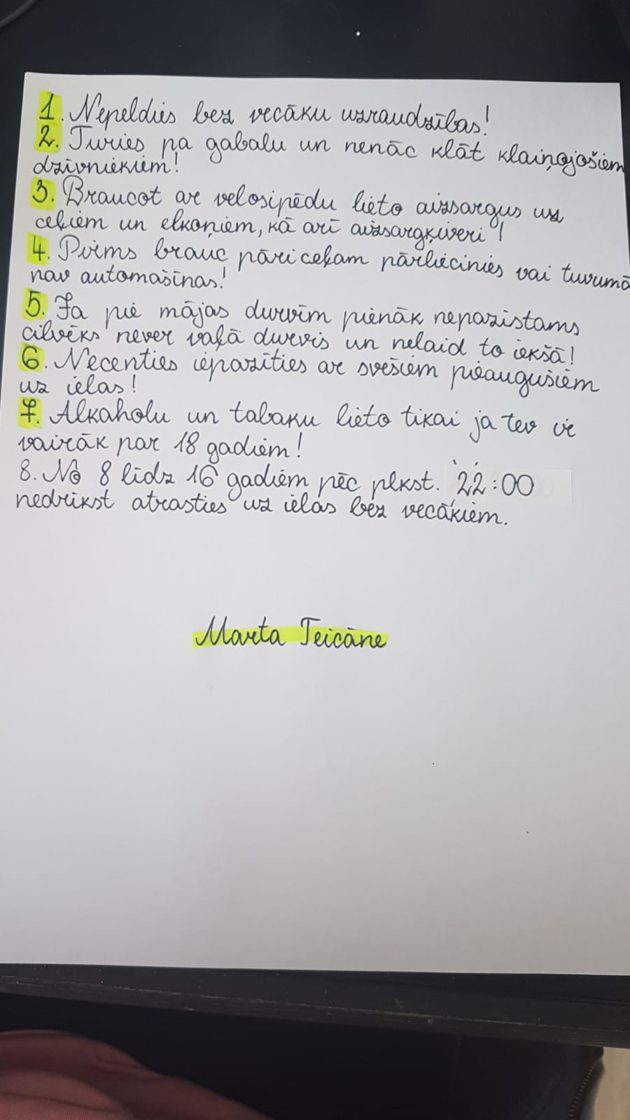 1. Nepeldies bez vecāku uzraudzības!
2. Turies pa gabalu un nenāc klāt klaiņojošiem
dzīvniekiem!
3. Braucot ar velosipēdu lieto aizsargus uz
ceļiem un elkoņiem, kā arī aizsargķiveri!
4. Pirms brauc pāri ceļam pārliecinies vai tuvumā
nav automašīnas!
5. Ja pie mājas durvīm pienāk nepazīstams
cilvēks never vaļā durvis un nelaid to iekšā!
6. Necenties iepazīties ar svešiem pieaugušiem
uz ielas!
7. Alkaholu un tabaku lieto tikai ja tev ir
vairāk par 18 gadiem!
8. No 8 līdz 16 gadiem pēc plkst. 22:00
nedrīkst atrasties uz ielas bez vecākiem.
Marta Teicāne